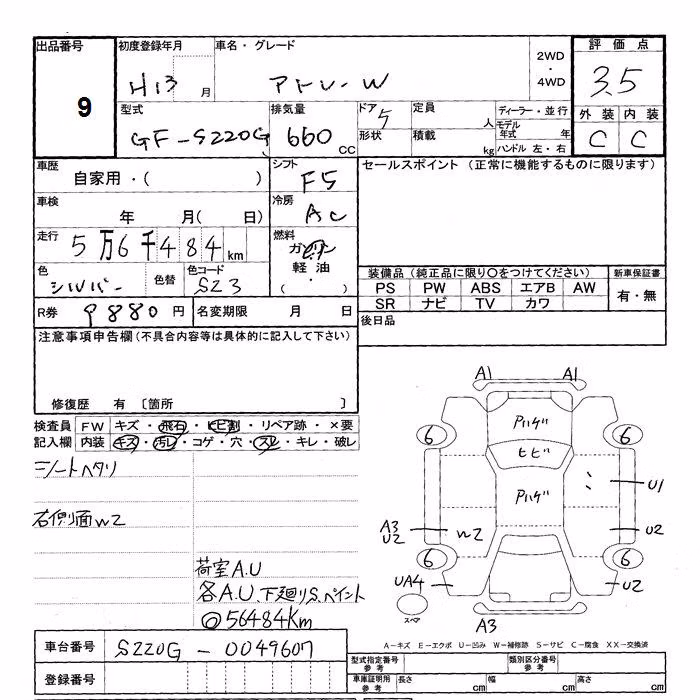 出品番号 初度登録年月 車名・グレード 2WD ・ 4WD 評価点
9 H13 月 アトレーW 3.5
型式 排気量 ドア 5 定員 人 ディーラー・並行 外装 内装
GF-S220G 660 CC 形状 積載 kg モデル年式 年 ハンドル 左・右 C C
車歴 シフト セールスポイント (正常に機能するものに限ります)
自家用・( ) F5
車検 冷房
年 月( 日) AC
走行 燃料
5万6千484km ガソリン
色 色替 色コード 軽油
シルバー S23 ( ・ )
装備品(純正品に限り〇をつけてください) 新車保証書
PS PW ABS エアB AW 有・無
SR ナビ TV カワ
R券 9880円 名変期限 月 日 後日品
注意事項申告欄(不具合内容等は具体的に記入して下さい)
修復歴 有 〔箇所 〕
検査員 FW キズ・飛石・ヒビ割・リペア跡・×要
記入欄 内装 キズ・汚レ・コゲ・穴・スレ・キレ・破レ
シートヘタリ
右側面W2
荷室A.U
各A.U.下廻りS.ペイント
◎56484Km
A1 A1
Pハゲ
6 6
ヒビ
Pハゲ U1
A3 U2 W2 U2
6 6
UA4 U2
スペア A3
車台番号 S220G-0049607
A-キズ E-エクボ U-凹み W-補修跡 S-サビ C-腐食 XX-交換済
登録番号
型式指定番号 参考 類別区分番号 参考
車庫証明用 参考 長さ cm 幅 cm 高さ cm